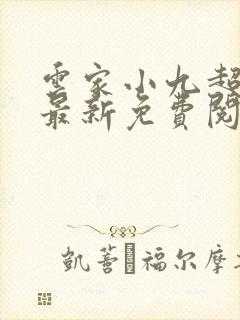 雲家小九超
最新免費閱
凱蒼·福尔摩